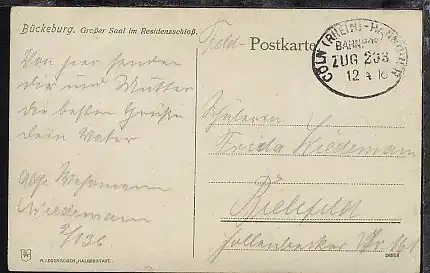 Bückeburg. Großer Saal im Residenzschloß.
Feld-Postkarte
CÖLN (RHEIN)-HANNOVER
BAHNPOST
ZUG 203
12 4 16
Von hier senden
dir und Mutter
die besten Grüße
dein Vater
Wiedemann
Schülerin
Frida Wiedemann
Bielefeld
R. LEDERBOGEN, HALBERSTADT.